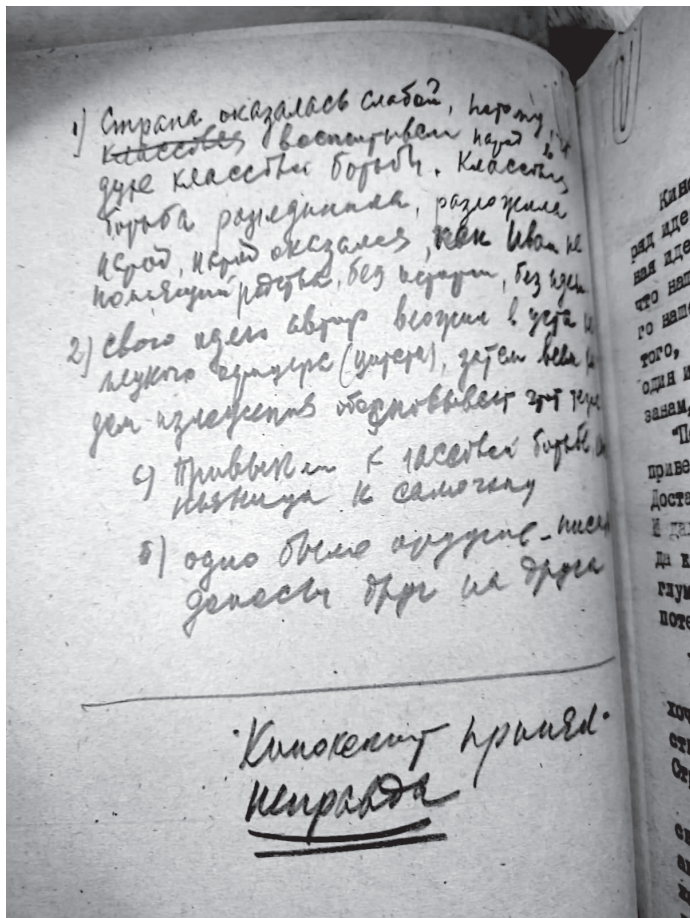 1) Страна оказалась слабой, потому,
классовая воспитывали народ в
духе классовой борьбы. Классовая
борьба разъединила, разложила
народ, народ оказался, как Иван не
помнящий родства, без истории, без идеи
2) Свою идею автор вложил в уста
(цитата), затем всем
дом изложения обосновывает этот тезис
а) Привыкли к классовой борьбе,
пьяница к самогону
б) одно было орудие – писа
доносы друг на друга
"Кинокомит принял"
неправда
Кино
ряд иде
ная иде
что наш
го наше
того,
один и
занам,
"П
приве
Доста
И да
да к
глум
поте
хоч
ств
Ст